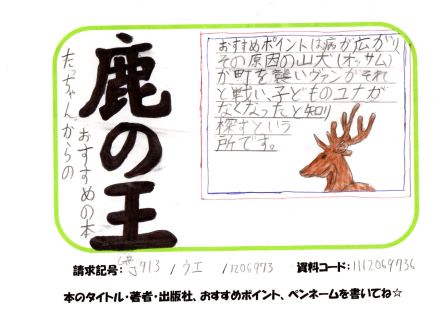 鹿の王
たっちゃんからの
おすすめの本
おすすめポイントは病が広がり
その原因の山犬(オッサム)
が町を襲いヴァンがそれ
と戦い、子どものユナが
なくなったと知り
探すという
所です。
請求記号: 913 / ウエ / 1206973 資料コード: 1112069736
本のタイトル・著者・出版社、おすすめポイント、ペンネームを書いてね☆